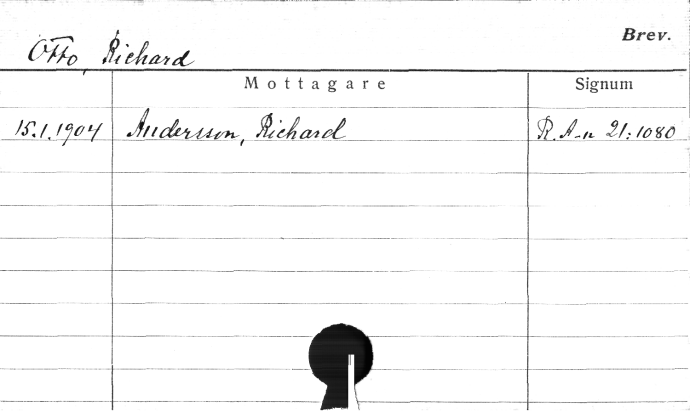 Brev.
Otto, Richard
Mottagare Signum
15.1.1904 Andersson, Richard R. A-n 21:1080